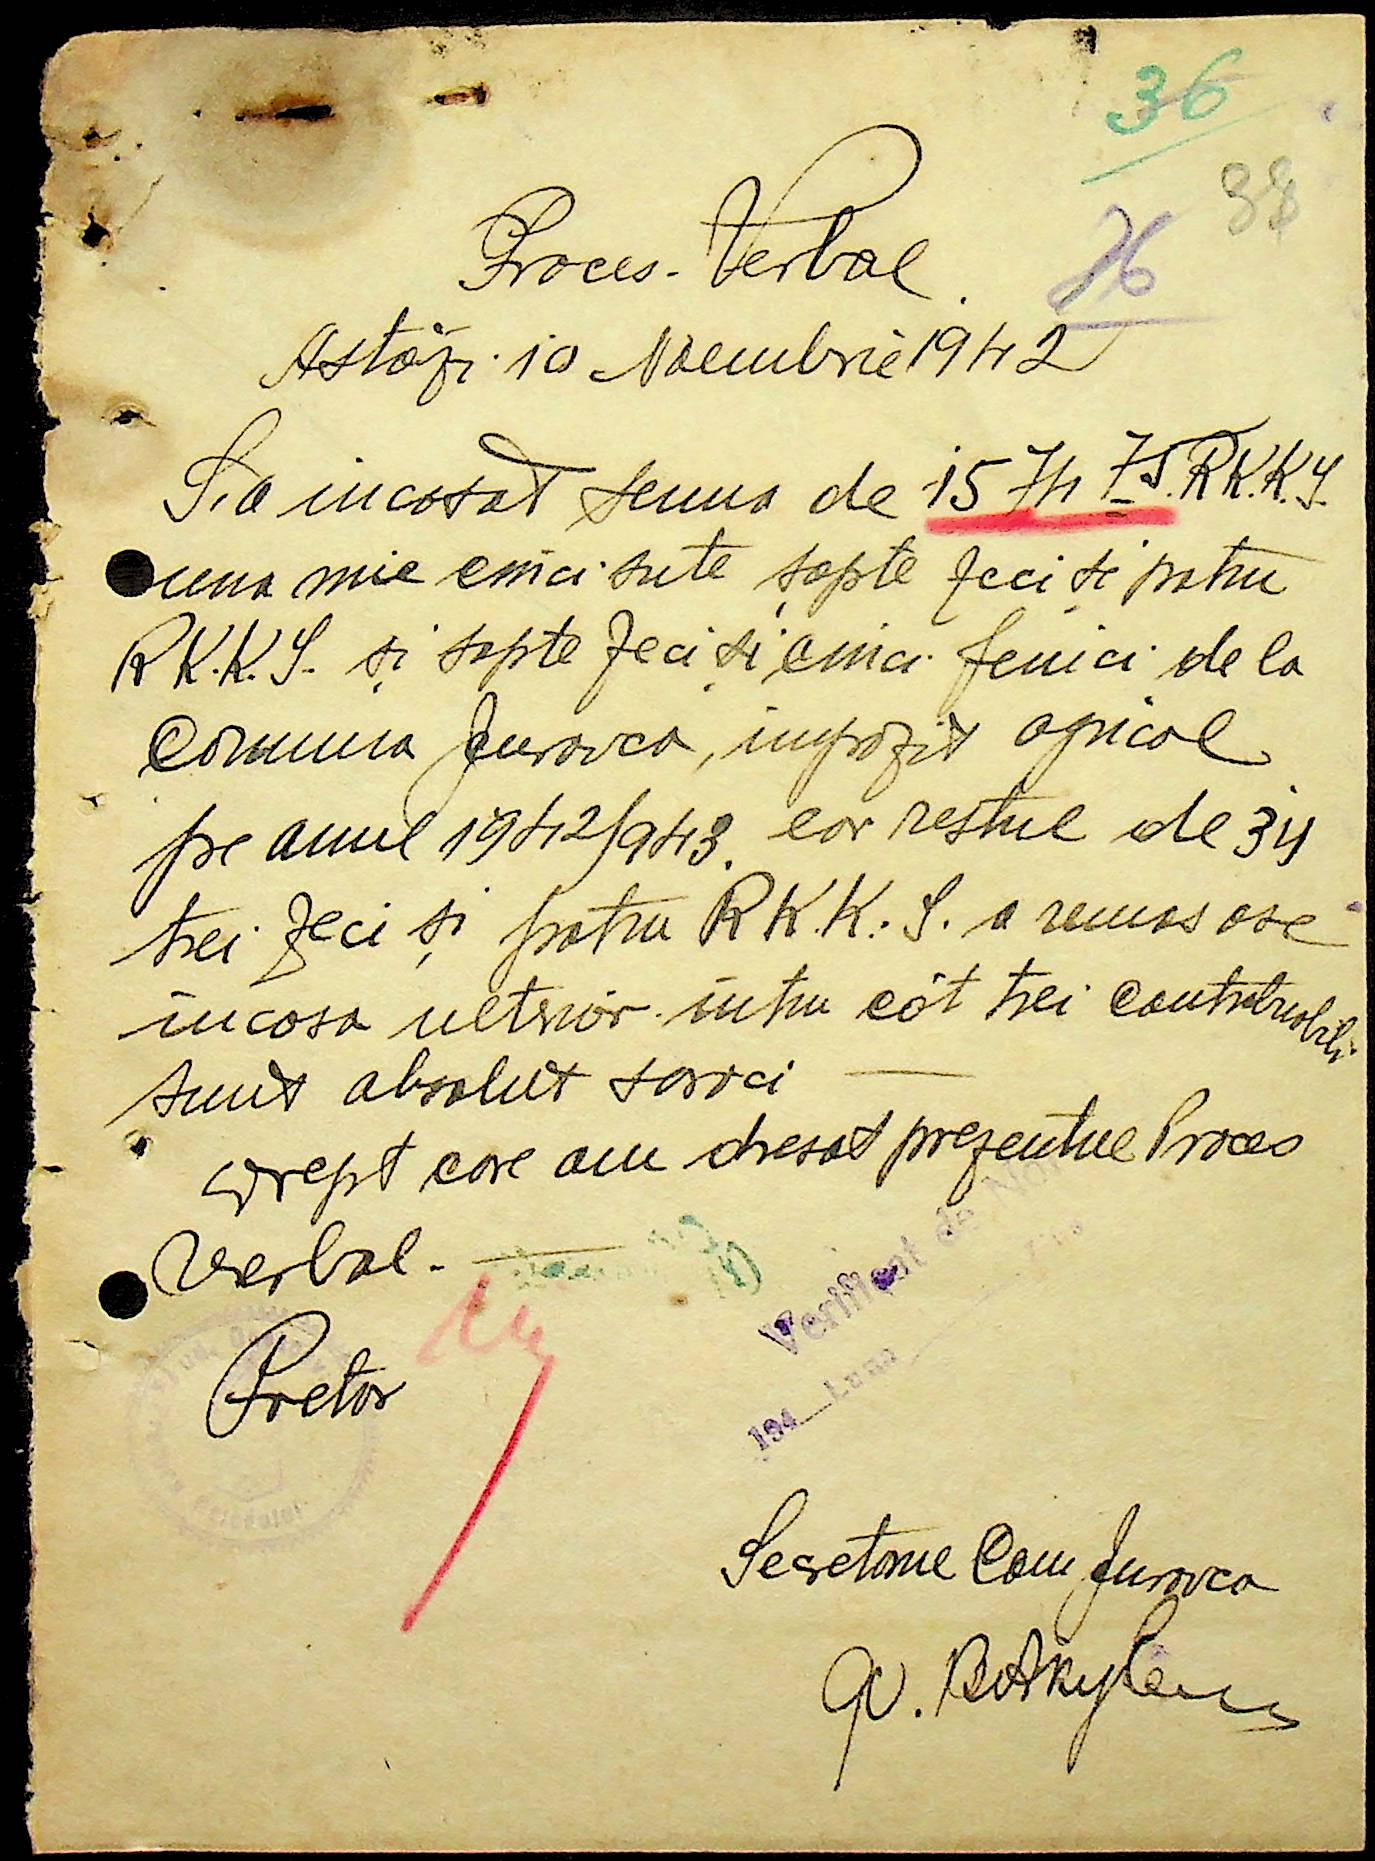 36
38
76
Proces-Verbal.
Astăzi 10 Noembrie 1942
S'a incasat suma de 1574 75. R.K.K.S.
una mie cinci sute șapte zeci și patru
R.K.K.S. și sapte zeci și cinci fenici de la
Comuna Jurovca, impozit agricol
pe anul 1942/943. ear restul de 34
trei zeci și patru R.K.K.S. a remas ase
incasa ulterior intru cât trei contribuabili
sunt absolut saraci —
Drept care am dresat prezentul Proces
Verbal. —
Verificat de Noi
194__ Luna
Pretor
Secretarue Com Jurovca